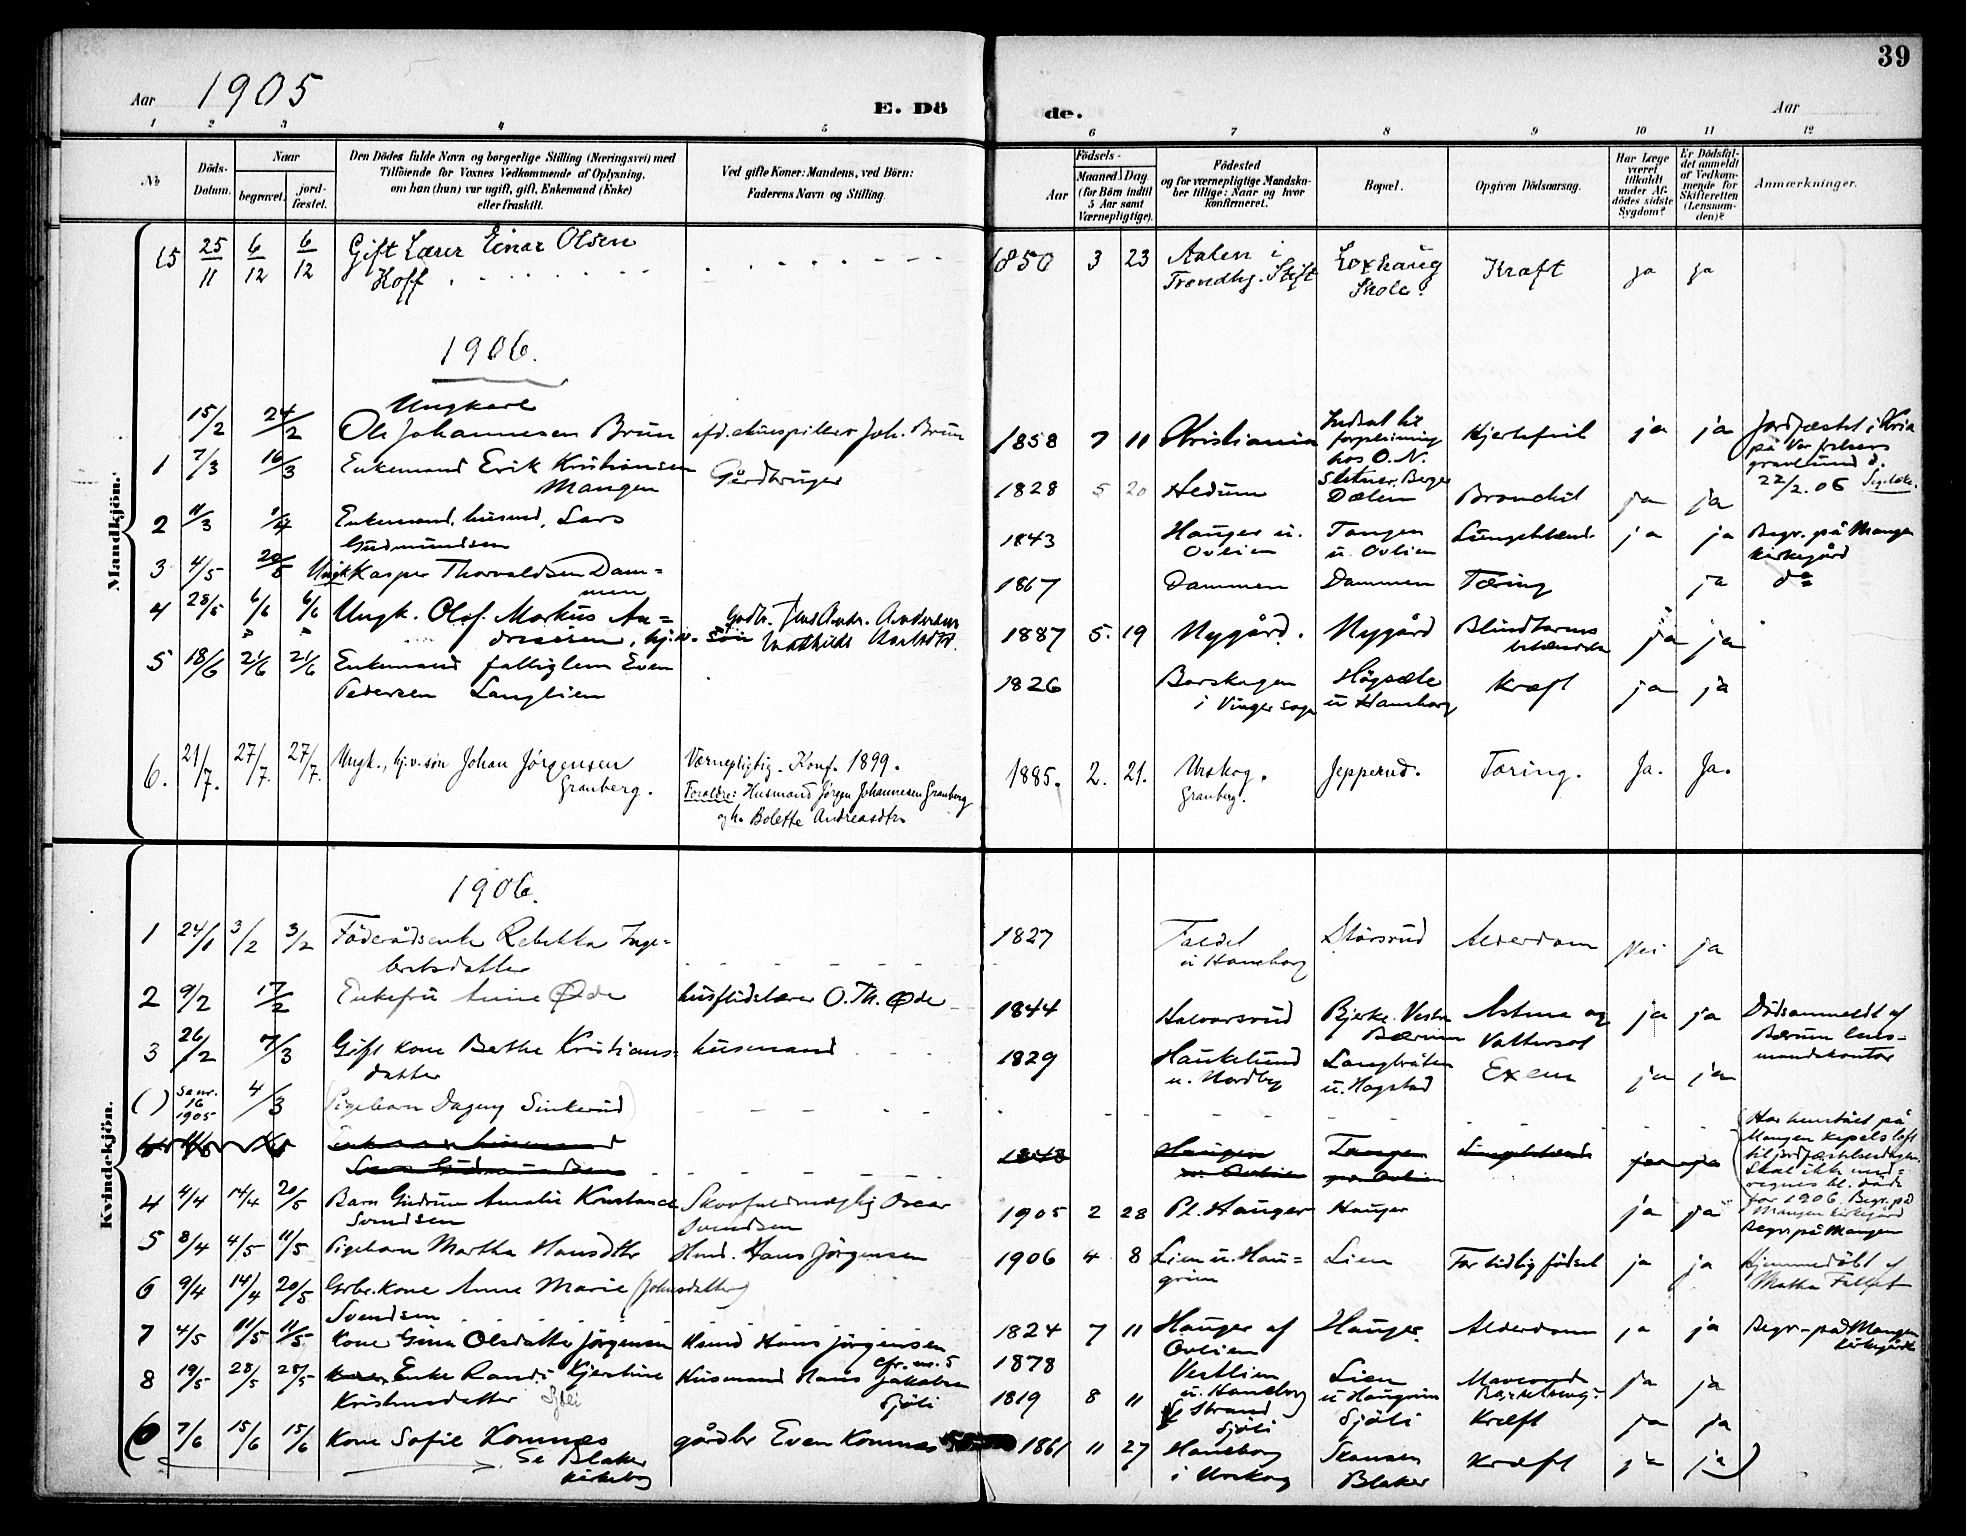 39
Aar 1905
E. Dö
de.
Aar
1 2 3 4 5 6 7 8 9 10 11 12
№
Döds-Datum.
Naar
begravet.
jord-fæstet.
Den Dödes fulde Navn og borgerlige Stilling (Næringsvei) med
Tilföiende for Voxnes Vedkommende af Oplysning,
om han (hun) var ugift, gift, Enkemand (Enke)
eller fraskilt.
Ved gifte Koner: Mandens, ved Börn:
Faderens Navn og Stilling.
Födsels-
Aar
Maaned
Dag
(for Börn indtil
5 Aar samt
Værnepligtige).
Födested
og for værnepligtige Mandska-
ber tillige: Naar og hvor
konfirmeret.
Bopæl.
Opgiven Dödsaarsag.
Har Læge
været
tilkaldt
under Af-
dödes sidste
Sygdom?
Er Dödsfal-
det anmeldt
af Vedkom-
mende for
Skifteretten
(Lensman-
den)?
Anmærkninger.
Mandkjön.
15 25/11 6/12 6/12 Gift Lærer Einar Olsen
Hoff
1850 3 23 Aalen i
Trondhj. Stift
Loxhaug
Skole.
Kræft ja ja
1906.
15/2 24/2 Ungkarl
Ole Johannesen Brun
Joh. Brun
1858 7 11 Kristiania
Indsat til
forpleining
hos O. N.
Berger
Hjertefeil ja ja
Jordfæstet i Kria
på Vor frelsers
gravlund d.
22/2.06
1 7/3 16/3 Enkemand Erik Kristiansen
Mangen
Gårdbruger
1828 5 20 Hedum Dælen Bronchit ja ja
2 11/3 Enkemand, husmd, Lars
Gudmundsen
1843 Hauger u.
Ovlien
Tangen
u. Ovlien
ja ja
Begr. på Mangen
kirkegård
3 4/5 20/5 Ungk Kasper Thorvaldsen Dam=
men
1867 Dammen Dammen Tæring ja do
4 28/5 6/6 6/6 Ungk. Olof Markus An=
dreesen, hj.v. søn
1887 5. 19 Nygård. Nygård Blindtarms
betændelse
ja ja
5 18/6 21/6 21/6 Enkemand fattiglem Even
Pedersen Langlien
1826 Barskogen
i Vinger sogn
Høgsæte
u Haneborg
Kræft ja ja
6. 21/7. 27/7. 27/7. Ungk., hj.v.søn Johan Jörgensen
Granberg.
Værnepligtig. Konf. 1899.
Forældre: Husmand Jörgen Johannesen Granberg
og h. Bolette Andreasdtr.
1885. 2. 21. Urskog.
Granberg.
Jepperud. Tæring. Ja. Ja.
Kvindekjön.
1906.
1 24/1 3/2 3/2 Föderådsenke Rebekka Inge=
bretsdatter
1827 Faldet
u Haneborg
Störsrud Alderdom Nei ja
2 9/2 17/2 Enkefru Anne Øde
husflidslærer O. Th. Øde
1844 Halvorsrud
Bjerke. Vestre
Bærum
Astma og
Vattersot
ja ja
Dödsanmeldt af
Bærum lens-
mandskontor
3 26/2 7/3 Gift kone Berthe Kristians=
datter
husmand
1829 Haukelund
u. Nordby
Langbråten
u. Hogstad
ja ja
( ) 16
1905
4/3 (Pigebarn Dagny Sinkerud)
Har henstået på
Mangen kapels loft
til jordfæstelsesdagen.
Skal ikke med=
regnes bl. döde
for 1906. Begr. på
Mangen kirkegård
Lars Gudmundsen
1843 Haugen
u. Ovlien
Tangen
u. Ovlien
ja ja
4 4/4 14/4 20/5 Barn Gudrun Amalie Konstance
Svendsen
Skovfuldmægtig Oscar
Svendsen
1905 2 28 Pl. Hauger Hauger ja ja
Begr. på Mangen
5 8/4 4/5 11/5 Pigebarn Martha Hansdtr
Hmd. Hans Jörgensen
1906 4 8 Lien u. Hau=
grim
Lien For tidlig födsel ja ja
Hjemmedöbt af
Matha Fallet
6 9/4 14/4 20/5 Grbr. kone Anne Marie (Johnsdatter)
Svendsen
1824 7 11 Hauger af
Ovlien
Hauger Alderdom ja ja
Begr. på Mangen
kirkegård
7 4/5 11/5 11/5 Kone Gina Olsdatter Jörgensen
Hsmd Hans Jörgensen
cfr. nr. 5
1878 Vestlien
u. Haneborg
Lien
u Haugrim
ja ja
8 19/5 28/5 28/5 Enke Randi Kjerstine
Kristensdatter
Husmand Hans Jakobsen
Sjöli
1819 8 11 Strand
Sjöli
Sjöli Kræft ja ja
(6 7/6 15/6 15/6 Kone Sofie Komnæs
Se Blaker
kirkebog
gårdbr Even Komnæs
1861 11 27 Haneborg
i Urskog
Skansen
Blaker
Kræft ja ja)